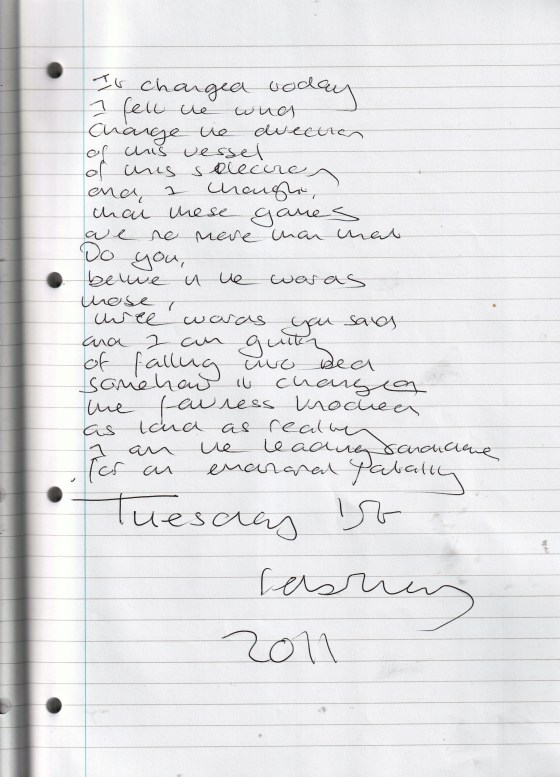 It changed today
I felt the wind
change the direction
of this vessel
of this selection
and, I thought,
that these games
are no more than that
Do you,
believe in the words
those,
three words you said
and I am guilty
of falling into bed
somehow it changed
the fairness knocked
as loud as reality
I am the leading candidate
for an emotional fatality
Tuesday 1st
February
2011